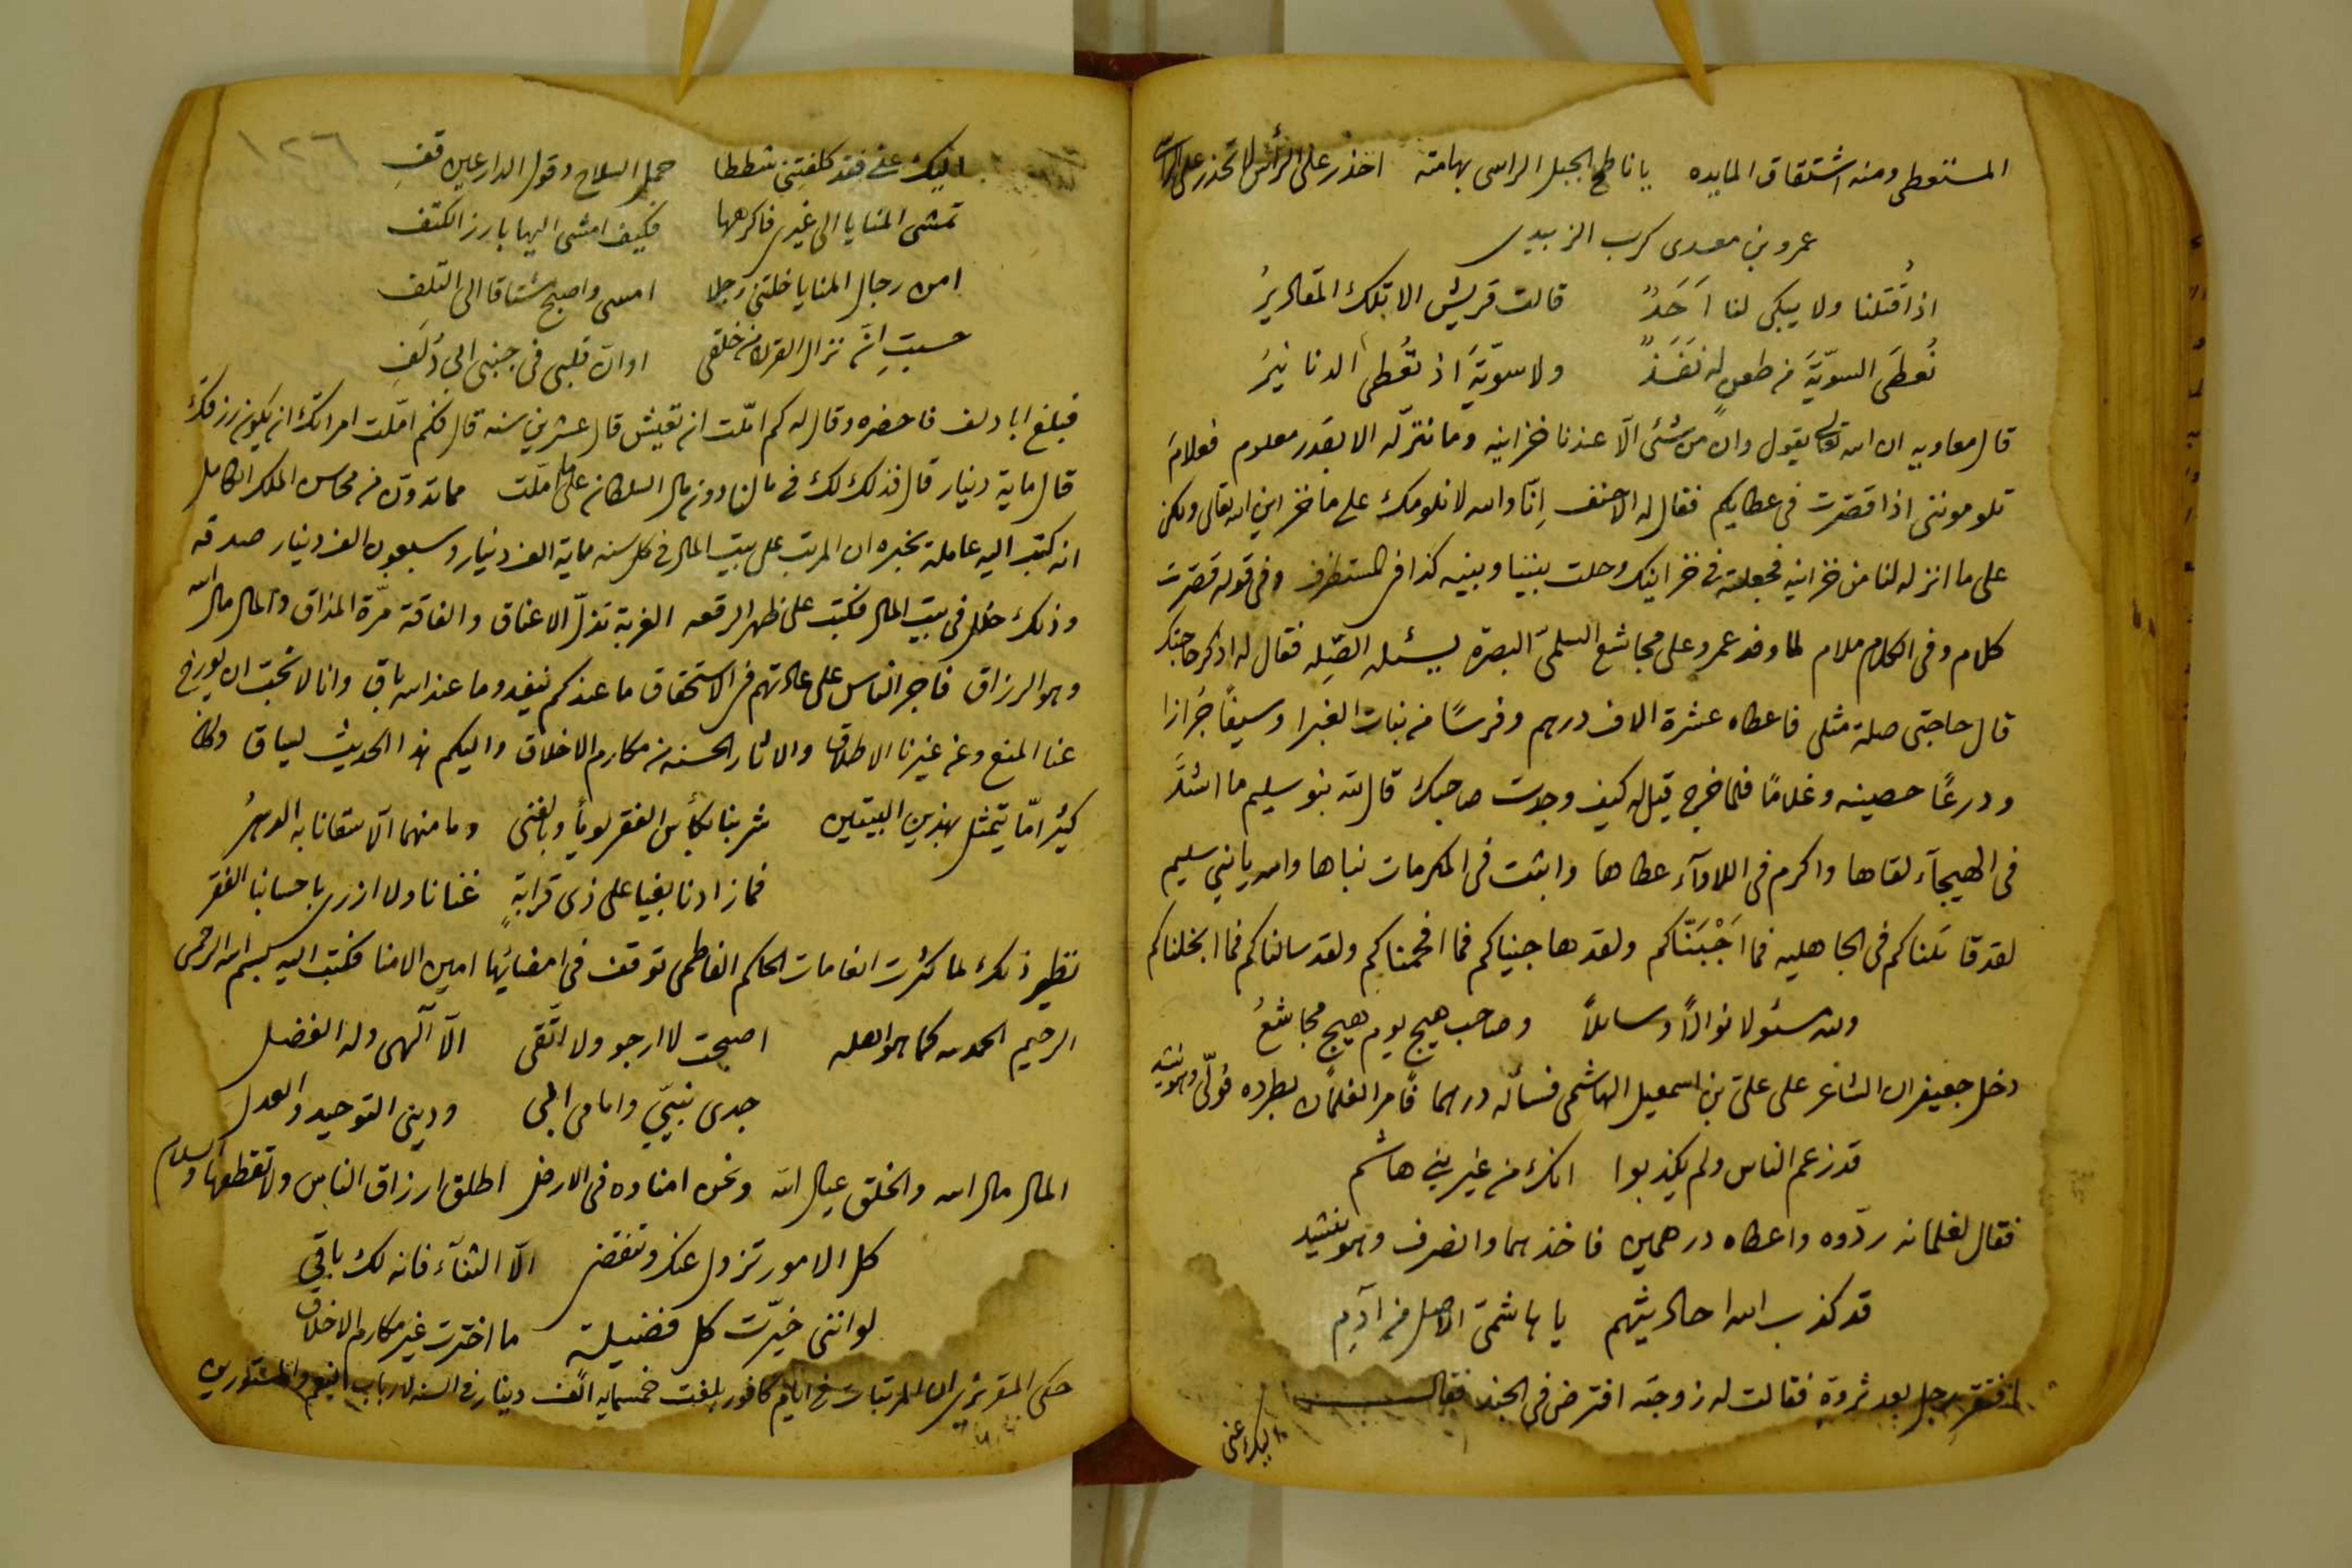 المستعطى ومنه اشتقاق المايده يا ناطح الجبل الراسى بهامته احذر على الرأس لا تحذر على الراسى
عمرو بن معدى كرب الزبيدى
اذا قُتلنا ولا يبكى لنا اَحَدٌ قالت قريش الا تلك المقاديرُ
نُعطَى السويّةَ من طعنٍ له نَفَذٌ ولا سويّةَ اذ تُعطى الدنانيرُ
قال معاويه ان الله تعالى يقول وان من شئ الّا عندنا خزاينه وما ننزّله الا بقدر معلوم فعلامَ
تلوموننى اذا قصّرت فى عطايكم فقال له الاحنف اِنّا والله لا نلومك على ما خزاين الله تعالى ولكن
على ما انزله لنا من خزاينه فجعلته فى خزاينك وحلت بيننا وبينه كذا فى المستطرف وفى قوله قصّرت
كلام وفى الكلام ملام لما وفد عمرو على مجاشع السلمىّ البصرة يسئله الصِّله فقال له اذكر حاجتك
قال حاجتى صلة مثلى فاعطاه عشرة الاف درهم وفرسًا من بنات الغبرا وسيفًا جُرازا
ودرعًا حصينه وغلامًا فلما خرج قيل له كيف وجدت صاحبك قال لله بنو سليم ما اشدَّ
فى الهيجآء لقاها واكرم فى اللاوآء عطاها واثبت فى المكرمات نباها والله يا بنى سليم
لقد قاتلناكم فى الجاهليه فما اَجْبَنّاكم ولقد هاجيناكم فما افحمناكم ولقد سالناكم فما ابخلناكم
ولله مسئولا نوالًا وسايلًا وصاحب هيج يوم هيج مجاشعُ
دخل جعيفران الشاعر على علىّ بن اسمعيل الهاشمى فسأله درهما فامر الغلمان بطرده فولّى وهو ينشد
قد زعم الناس ولم يكذبوا انك من غير بنى هاشم
فقال لغلمانه ردّوه واعطاه درهمين فاخذهما وانصرف وهو ينشد
قد كذب الله احاديثهم يا هاشمىّ الاصل من آدم
افتقر رجل بعد ثروة فقالت له زوجته افترض فى الجند فقال
اليك عنى
١٢٦
اليك عنى فقد كلفتِنى شططا حمل السلاح وقول الدارعين قفِ
تمشى المنايا الى غيرى فاكرهها فكيف امشى اليها بارز الكتف
امن رجال المنايا خلتنى رجلا امسى واصبح مشتاقا الى التلف
حسبتِ انّ نزال القرن من خلقى او ان قلبى فى جنبى ابى دُلَفِ
فبلغ ابا دلف فاحضره وقال له كم امّلت ان تعيش قال عشرين سنه قال فكم امّلت امراتك ان يكون رزقك
قال ماية دينار قال فذلك لك فى مالنا دون مال السلطان على ما امّلت مما تدوّن من محاسن الملك الكامل
انه كتب اليه عامله يخبره ان المرتب على بيت المال فى كل سنه ماية الف دينار وسبعون الف دينار صدقه
وذلك خلل فى بيت المال فكتب على ظهر الرقعه الغربة تذلّ الاعناق والفاقة مرّة المذاق والمال مال الله
وهو الرزاق فاجر الناس على عادتهم فى الاستحقاق ما عندكم ينفد وما عند الله باق وانا لا نحبّ ان يورخ
عنا المنع وعن غيرنا الاطلاق والاثار الحسنه من مكارم الاخلاق واليكم هذا الحديث يساق وكان
كثيرامّا يتمثل بهذين البيتين شربنا بكأس الفقر يوما وبالغنى وما منهما الّا سقانا به الدهرُ
فما زادنا بغيا على ذى قرابةٍ غنانا ولا ازرى باحسابنا الفقر
نظير ذلك لما كثرت انعامات الحاكم الفاطمى توقف فى امضائها امين الامنا فكتب اليه بسم الله الرحمن
الرحيم الحمد لله كما هو اهله اصبحت لا ارجو ولا اتّقى الّا الٓهى وله الفضل
جدى نبيّى وامامى ابى ودينى التوحيد والعدل
المال مال الله والخلق عيال الله ونحن امناوه فى الارض اطلق ارزاق الناس ولا تقطعها والسلام
كل الامور تزول عنك وتنقضى الّا الثنآء فانه لك باقى
لو اننى خيّرت كل فضيلة ما اخترت غير مكارم الاخلاق
حكى المقريزى ان المرتبات فى ايام كافور بلغت خمسمايه الف دينار فى السنه لارباب النعم والمستورين